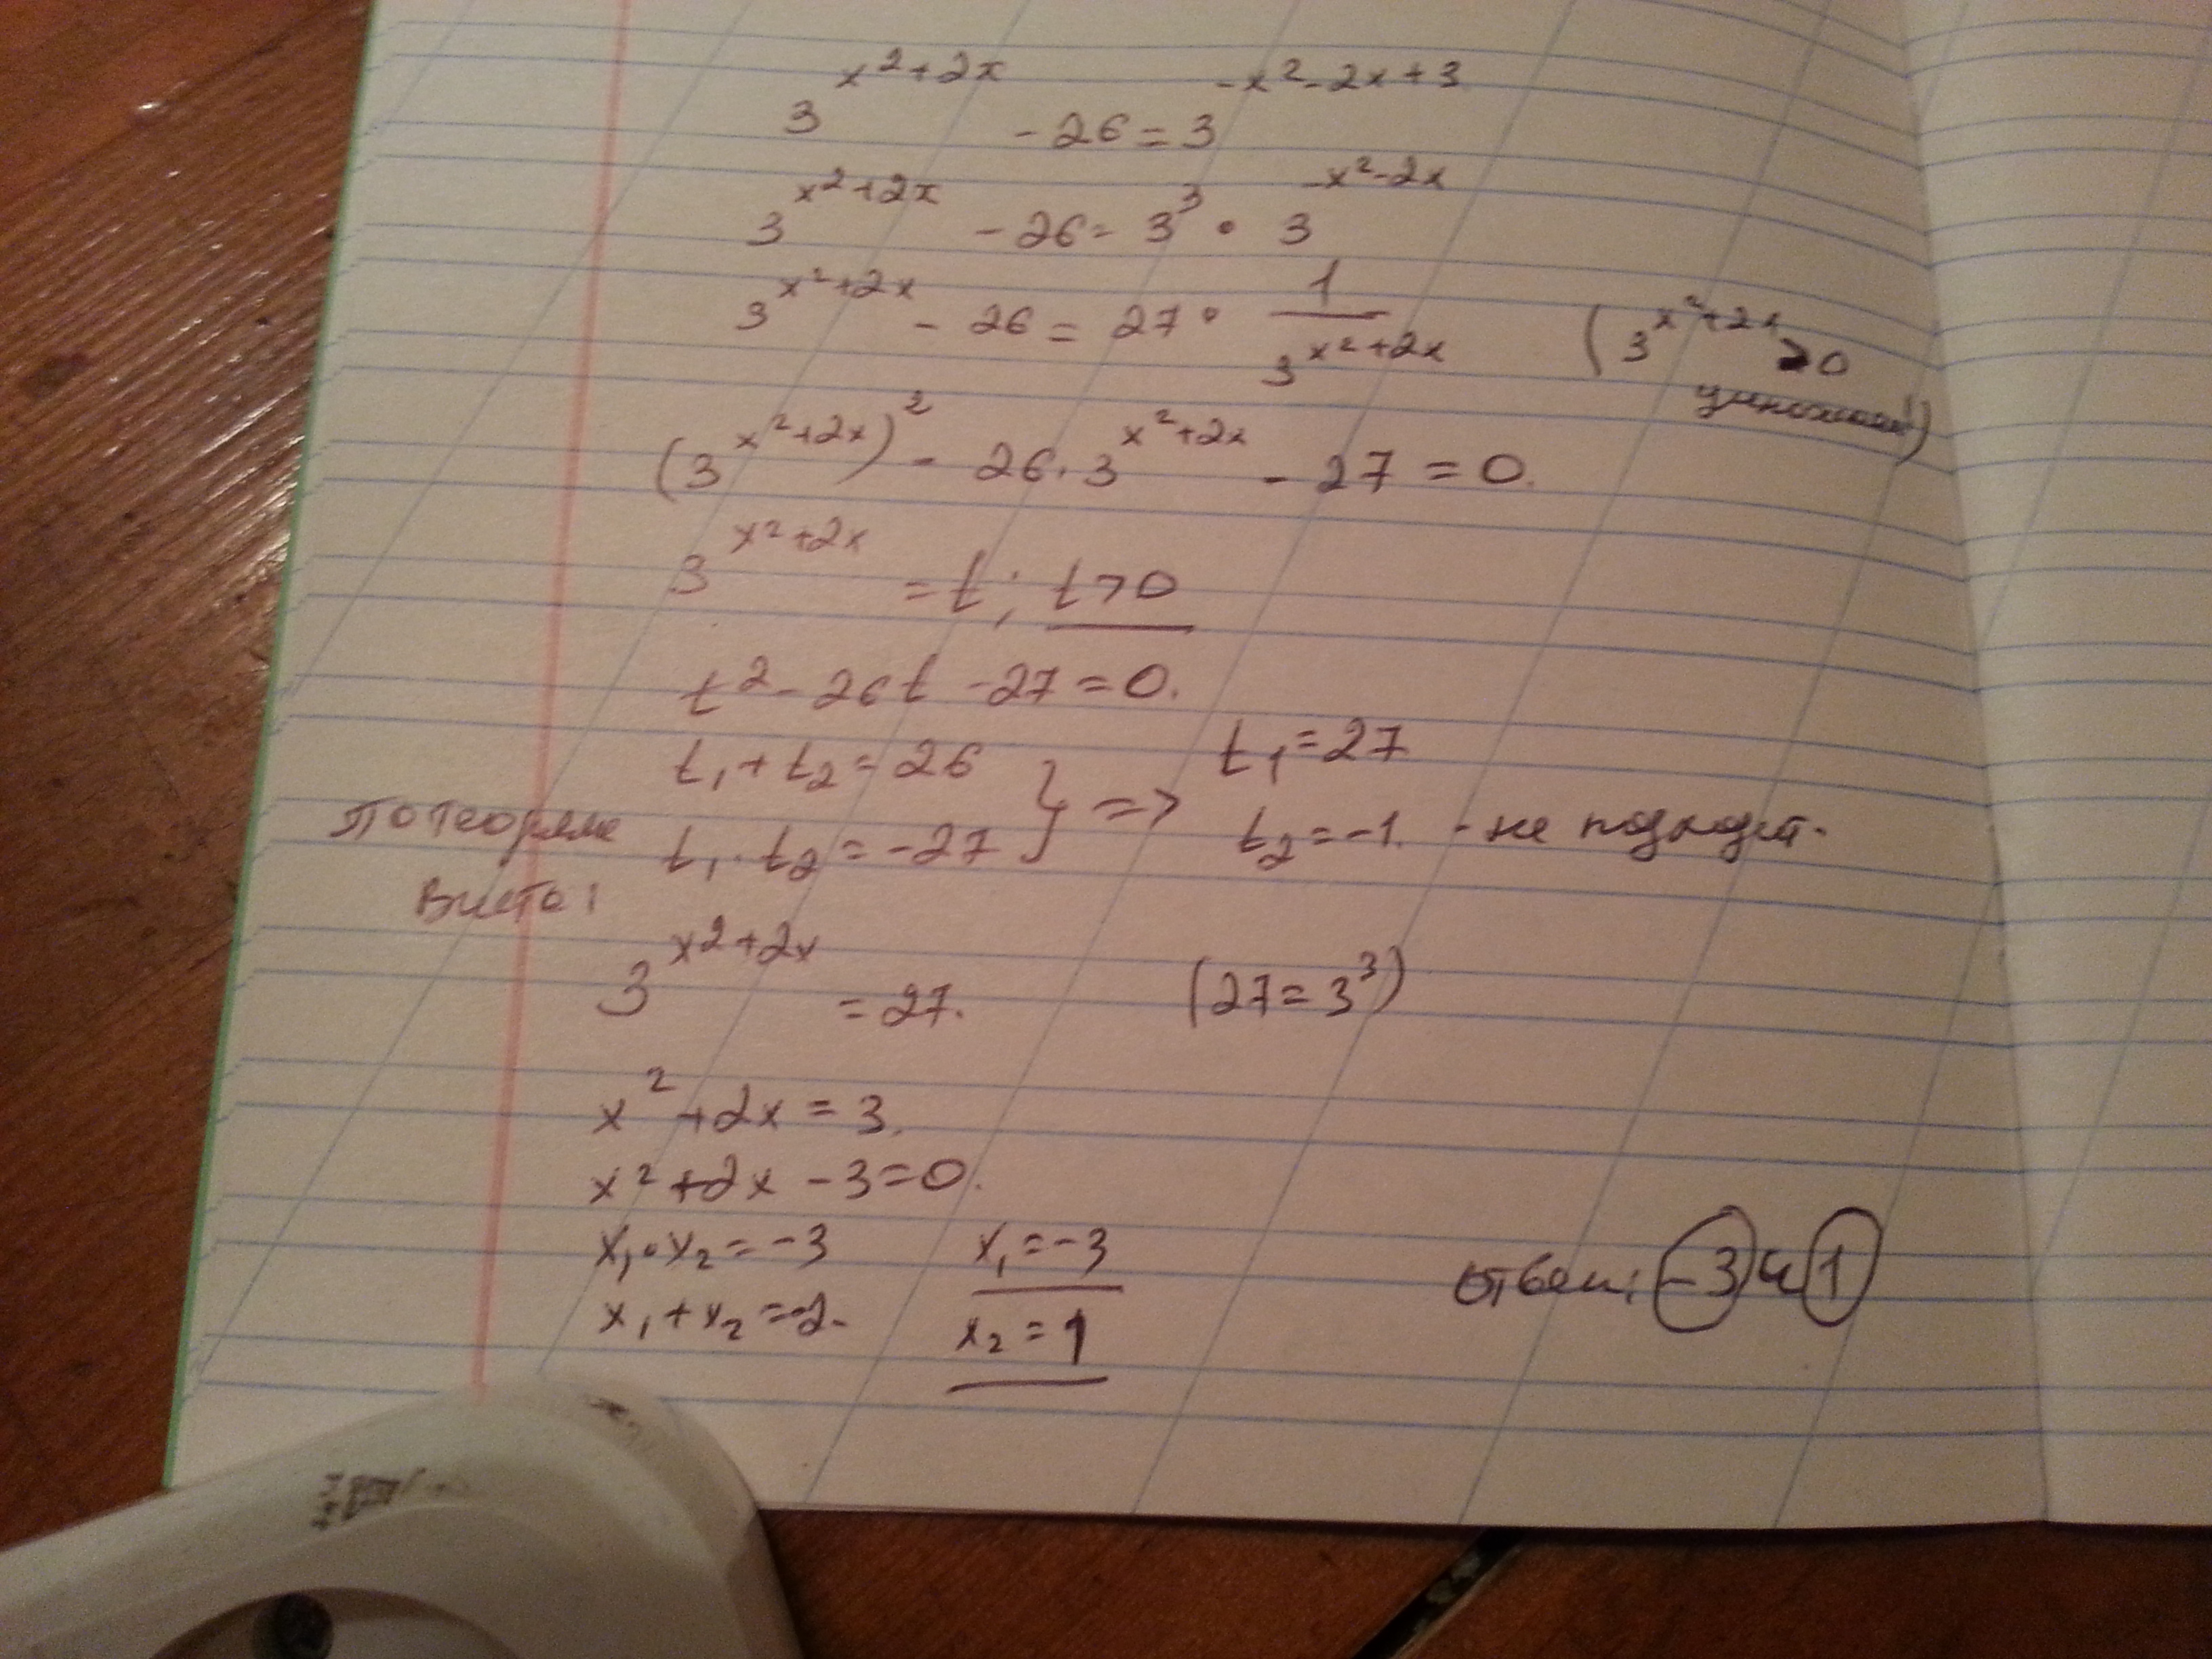 3^{x²+2x} - 26 = 3^{-x²-2x+3}
3^{x²+2x} - 26 = 3³ · 3^{-x²-2x}
3^{x²+2x} - 26 = 27 · 1/3^{x²+2x} (3^{x²+2x} > 0
умножим!)
(3^{x²+2x})² - 26 · 3^{x²+2x} - 27 = 0.
3^{x²+2x} = t; t>0
t² - 26t - 27 = 0.
По теореме
Виета:
t₁ + t₂ = 26
t₁ · t₂ = -27
} => t₁ = 27
t₂ = -1. - не подходит.
3^{x²+2x} = 27. (27 = 3³)
x² + 2x = 3.
x² + 2x - 3 = 0.
x₁ · x₂ = -3 x₁ = -3
x₁ + x₂ = -2. x₂ = 1
Ответ: -3 и 1